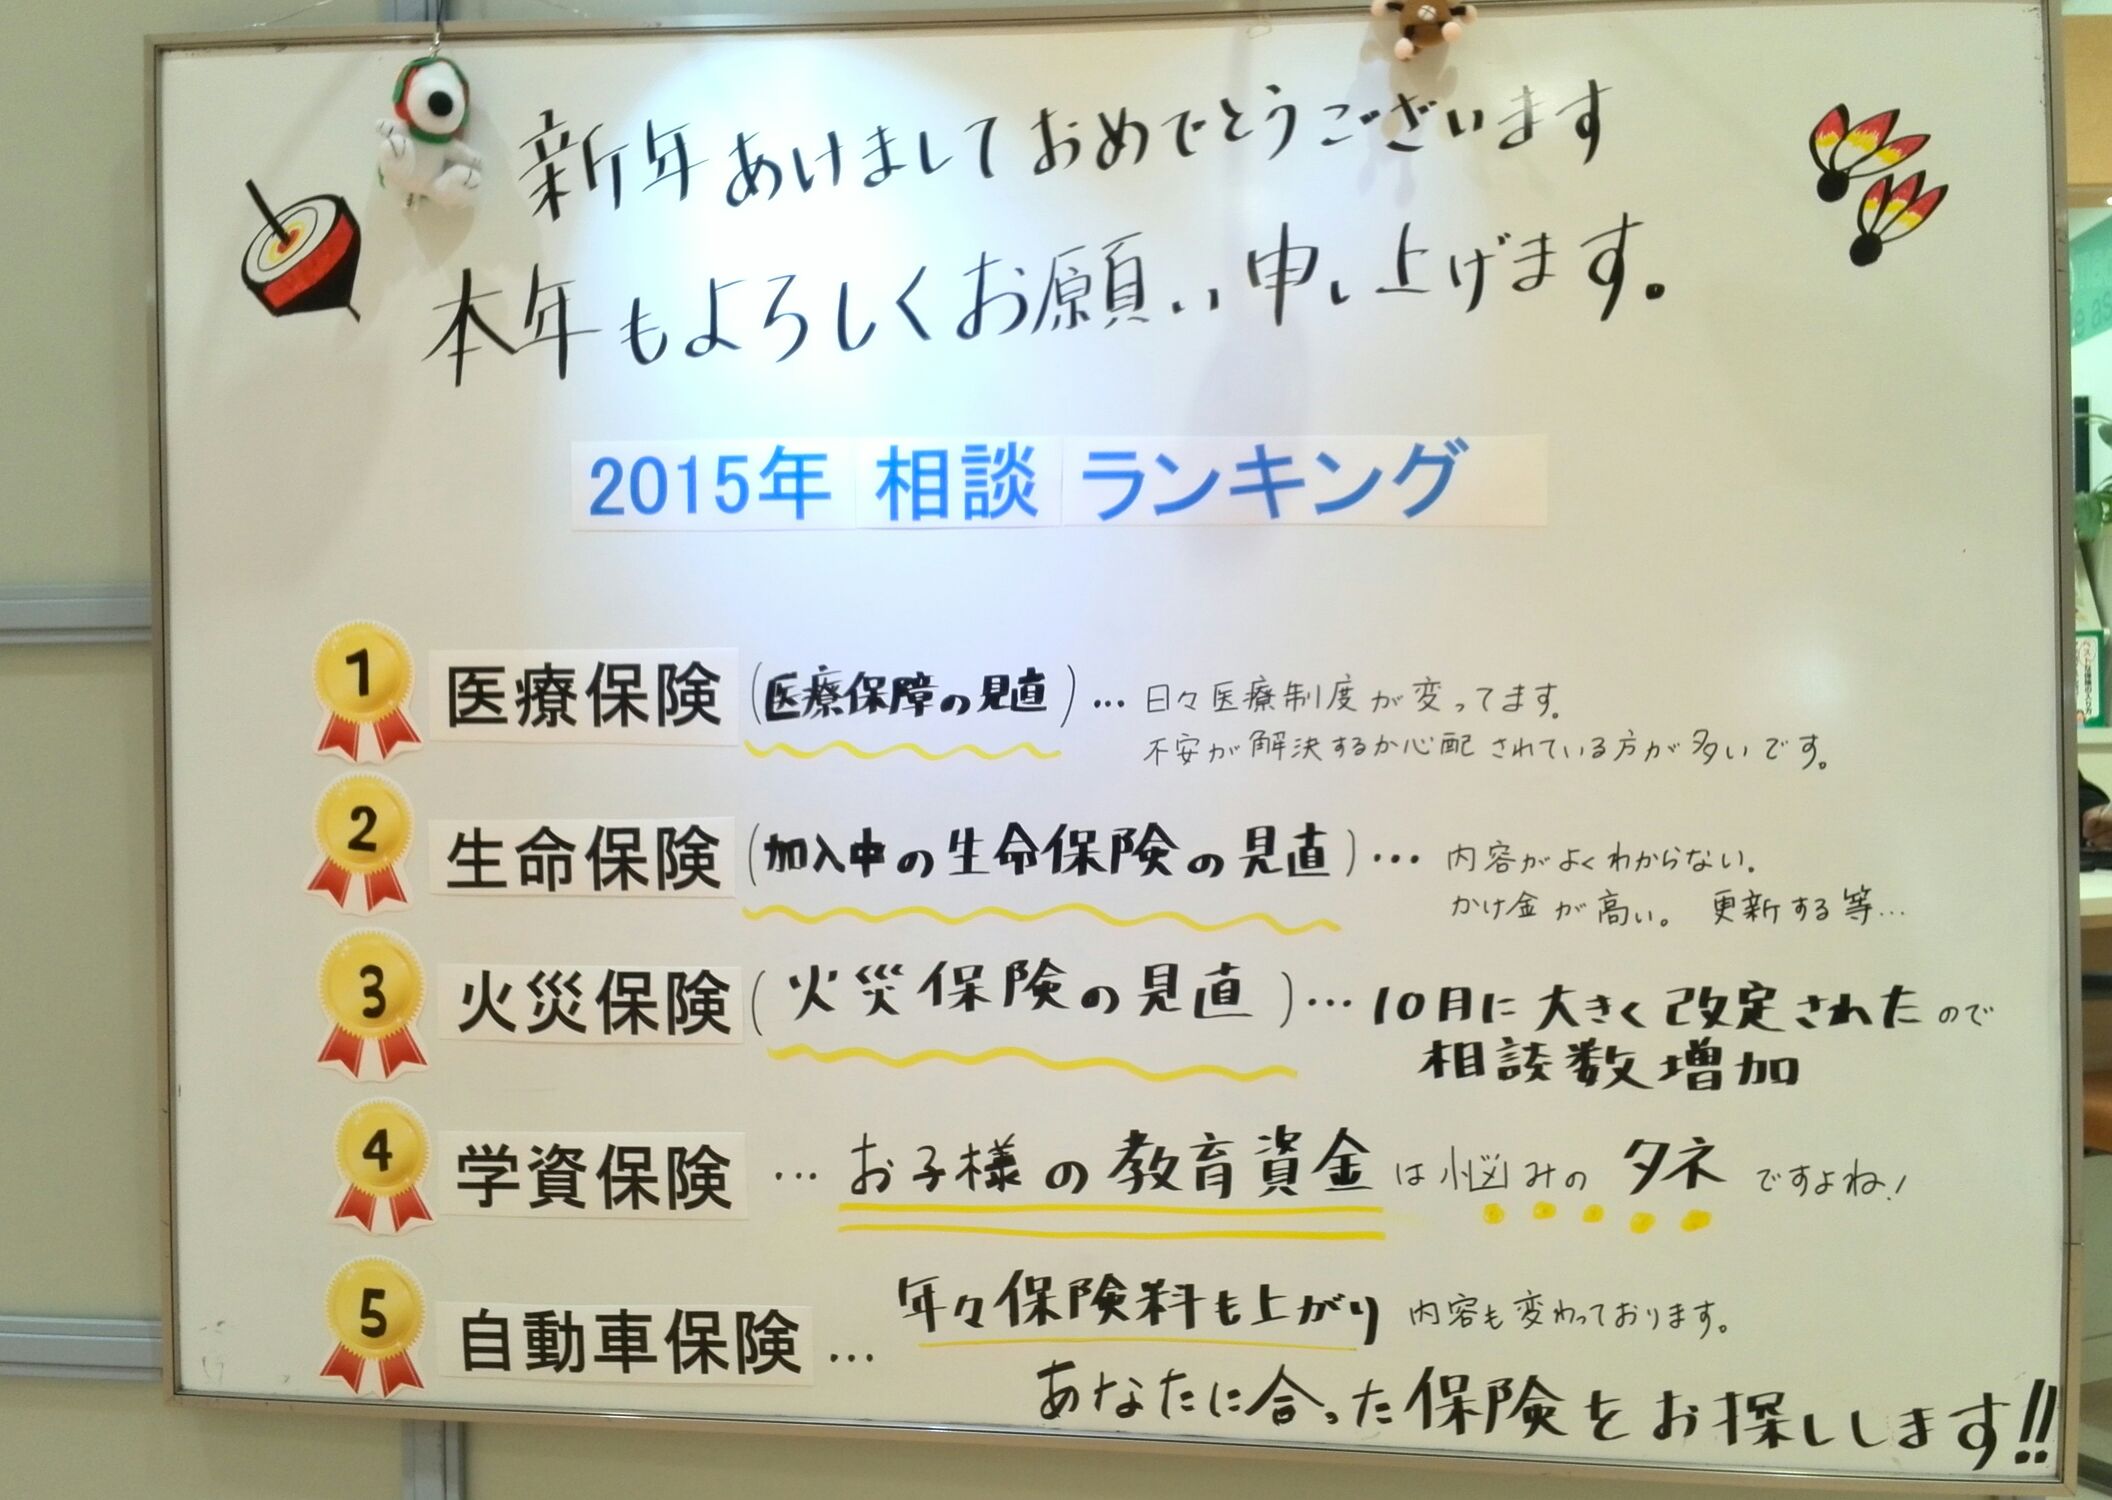 新年あけましておめでとうございます
本年もよろしくお願い申し上げます。
2015年 相談 ランキング
1 医療保険 (医療保障の見直) … 日々医療制度が変ってます。
不安が解決するか心配されている方が多いです。
2 生命保険 (加入中の生命保険の見直) … 内容がよくわからない。
かけ金が高い。 更新する等…
3 火災保険 (火災保険の見直) … 10月に大きく改定されたので
相談数増加
4 学資保険 … お子様の教育資金は悩みのタネですよね!
5 自動車保険 … 年々保険料も上がり 内容も変わっております。
あなたに合った保険をお探しします!!